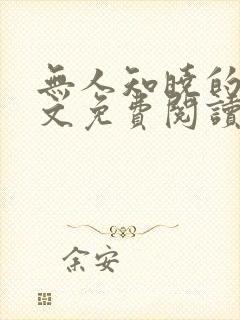 無人知曉的
文免費閱讀
余安